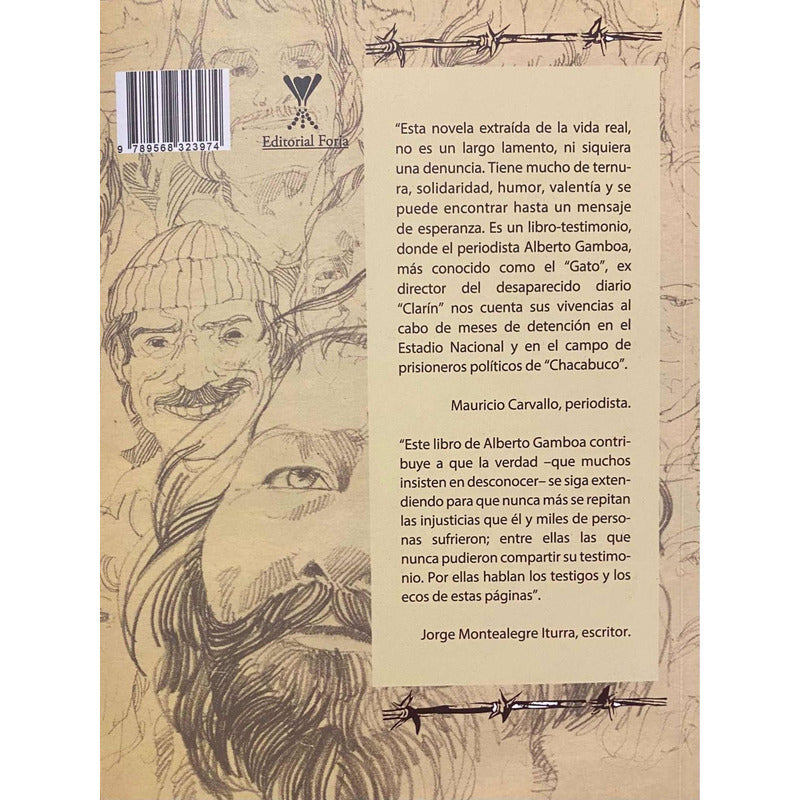 9 789568 323974
Editorial Forja
“Esta novela extraída de la vida real,
no es un largo lamento, ni siquiera
una denuncia. Tiene mucho de ternu-
ra, solidaridad, humor, valentía y se
puede encontrar hasta un mensaje
de esperanza. Es un libro-testimonio,
donde el periodista Alberto Gamboa,
más conocido como el “Gato”, ex
director del desaparecido diario
“Clarín” nos cuenta sus vivencias al
cabo de meses de detención en el
Estadio Nacional y en el campo de
prisioneros políticos de “Chacabuco”.
Mauricio Carvallo, periodista.
“Este libro de Alberto Gamboa contri-
buye a que la verdad –que muchos
insisten en desconocer– se siga exten-
diendo para que nunca más se repitan
las injusticias que él y miles de perso-
nas sufrieron; entre ellas las que
nunca pudieron compartir su testimo-
nio. Por ellas hablan los testigos y los
ecos de estas páginas”.
Jorge Montealegre Iturra, escritor.